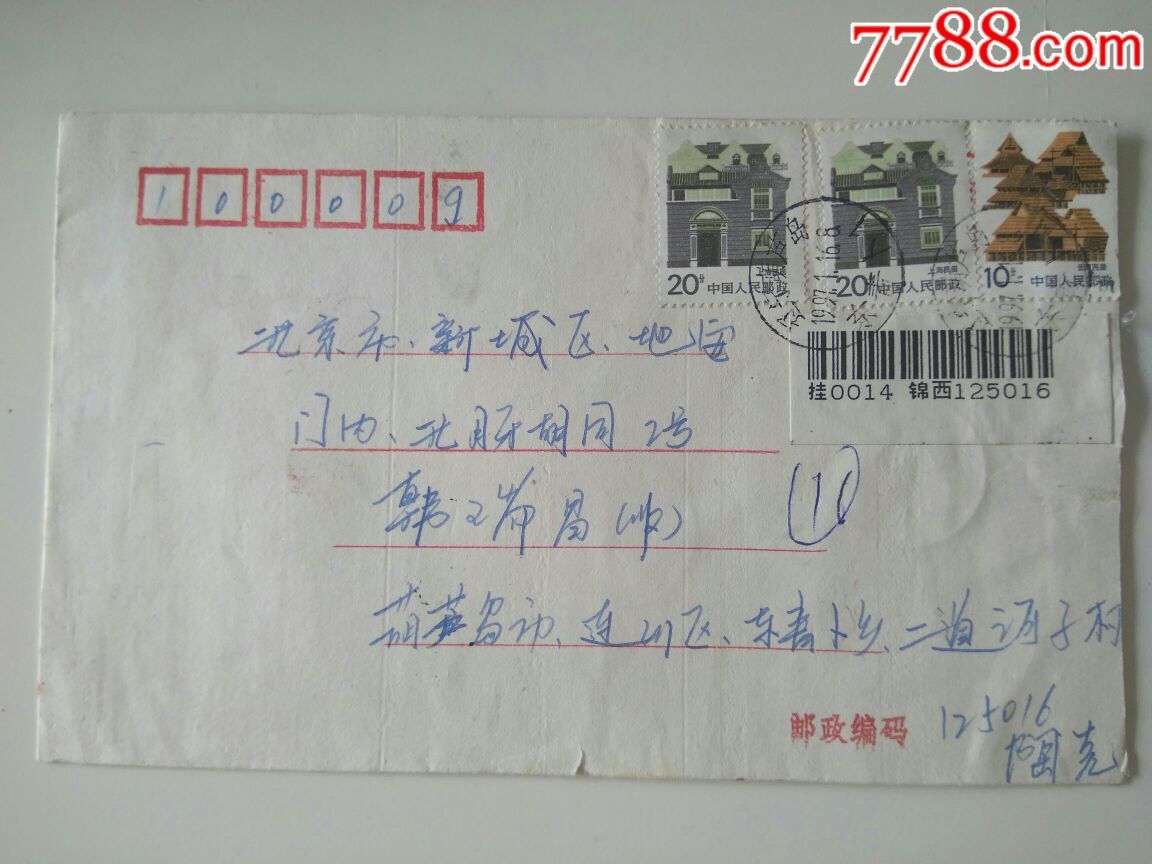 7788.com
1 0 0 0 0 9
20分 上海民居 中国人民邮政
20分 上海民居 中国人民邮政
10分 云南民居 中国人民邮政
辽宁葫芦岛
1997.1.16.8
挂0014 锦西125016
北京市、新城区、地安
门内、北月牙胡同2号
韩瑞昌(收)
11
葫芦岛市、连山区、 二道河子村
邮政编码 125016
陶克